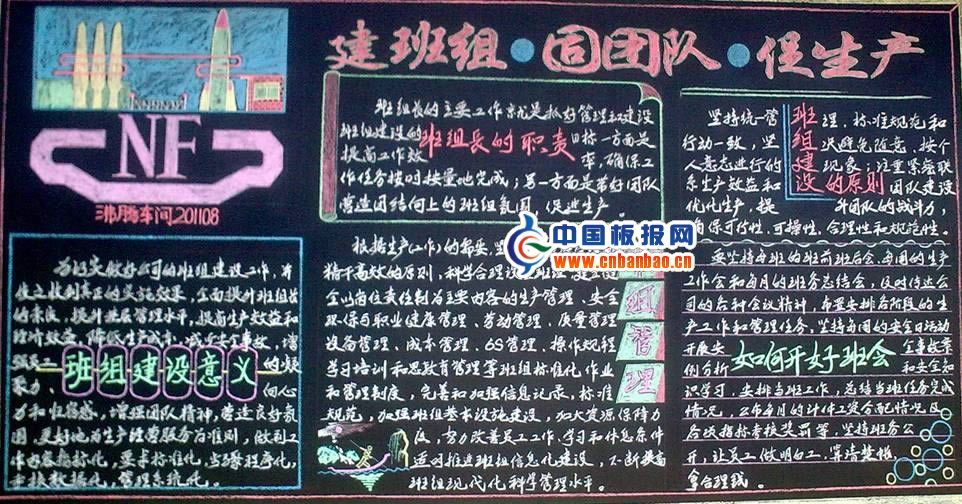 建班组·固团队·促生产
NF
沸腾车间201108
班组长的主要工作就是抓好管理和建设
班组建设的
班组长的职责
目标一方面是
提高工作效
率,确保工
作任务按时按量地完成;另一方面是带好团队
营造团结向上的班组氛围,促进生产。
坚持统一管
理、标准规范和
班组建设的原则
行动一致,坚
决避免随意、按个
人意志进行的
现象;注重紧密联
系生产效益和
团队建设
优化生产,提
升团队的战斗力,
确保可行性、可操性、合理性和规范性。
中国板报网
www.cnbanbao.cn
为切实做好公司的班组建设工作,并
使之收到真正的实施效果,全面提升班组长
的素质、提升基层管理水平,提高生产效益和
经济效益、降低生产成本、减少安全事故,增
强员工
班组建设意义
的凝聚力、
向心
力和归属感,增强团队精神,营造良好氛
围,更好地为生产经营服务为准则,做到工
作内容指标化、要求标准化、步骤程序化、
考核数据化、管理系统化。
根据生产(工作)的需要,坚
精干高效的原则,科学合理设
全以岗位责任制为主要内容的生产管理、安全
环保与职业健康管理、劳动管理、质量管理
组管理
设备管理、成本管理、6S管理、操作规程
学习培训和思政教育管理等班组标准化作业
和管理制度,完善和加强信息记录,标准
规范,加强班组基本设施建设,加大资源保障力
度,努力改善员工工作、学习和休息条件
适时推进班组信息化建设,不断提高
班组现代化科学管理水平。
要坚持每班的班前班后会、每周的生产
工作会和每月的班务总结会,及时传达公
司的各种会议精神,布置安排各阶段的生
产工作和管理任务,坚持每周的安全日活动
开展安
全事故案
如何开好班会
例分析
和安全知
识学习,安排当班工作,总结当班任务完成
情况,工作每月的计件工资分配情况及
各项指标考核奖罚等,坚持班务公
开,让员工做明白工、算清楚帐、
拿合理钱。